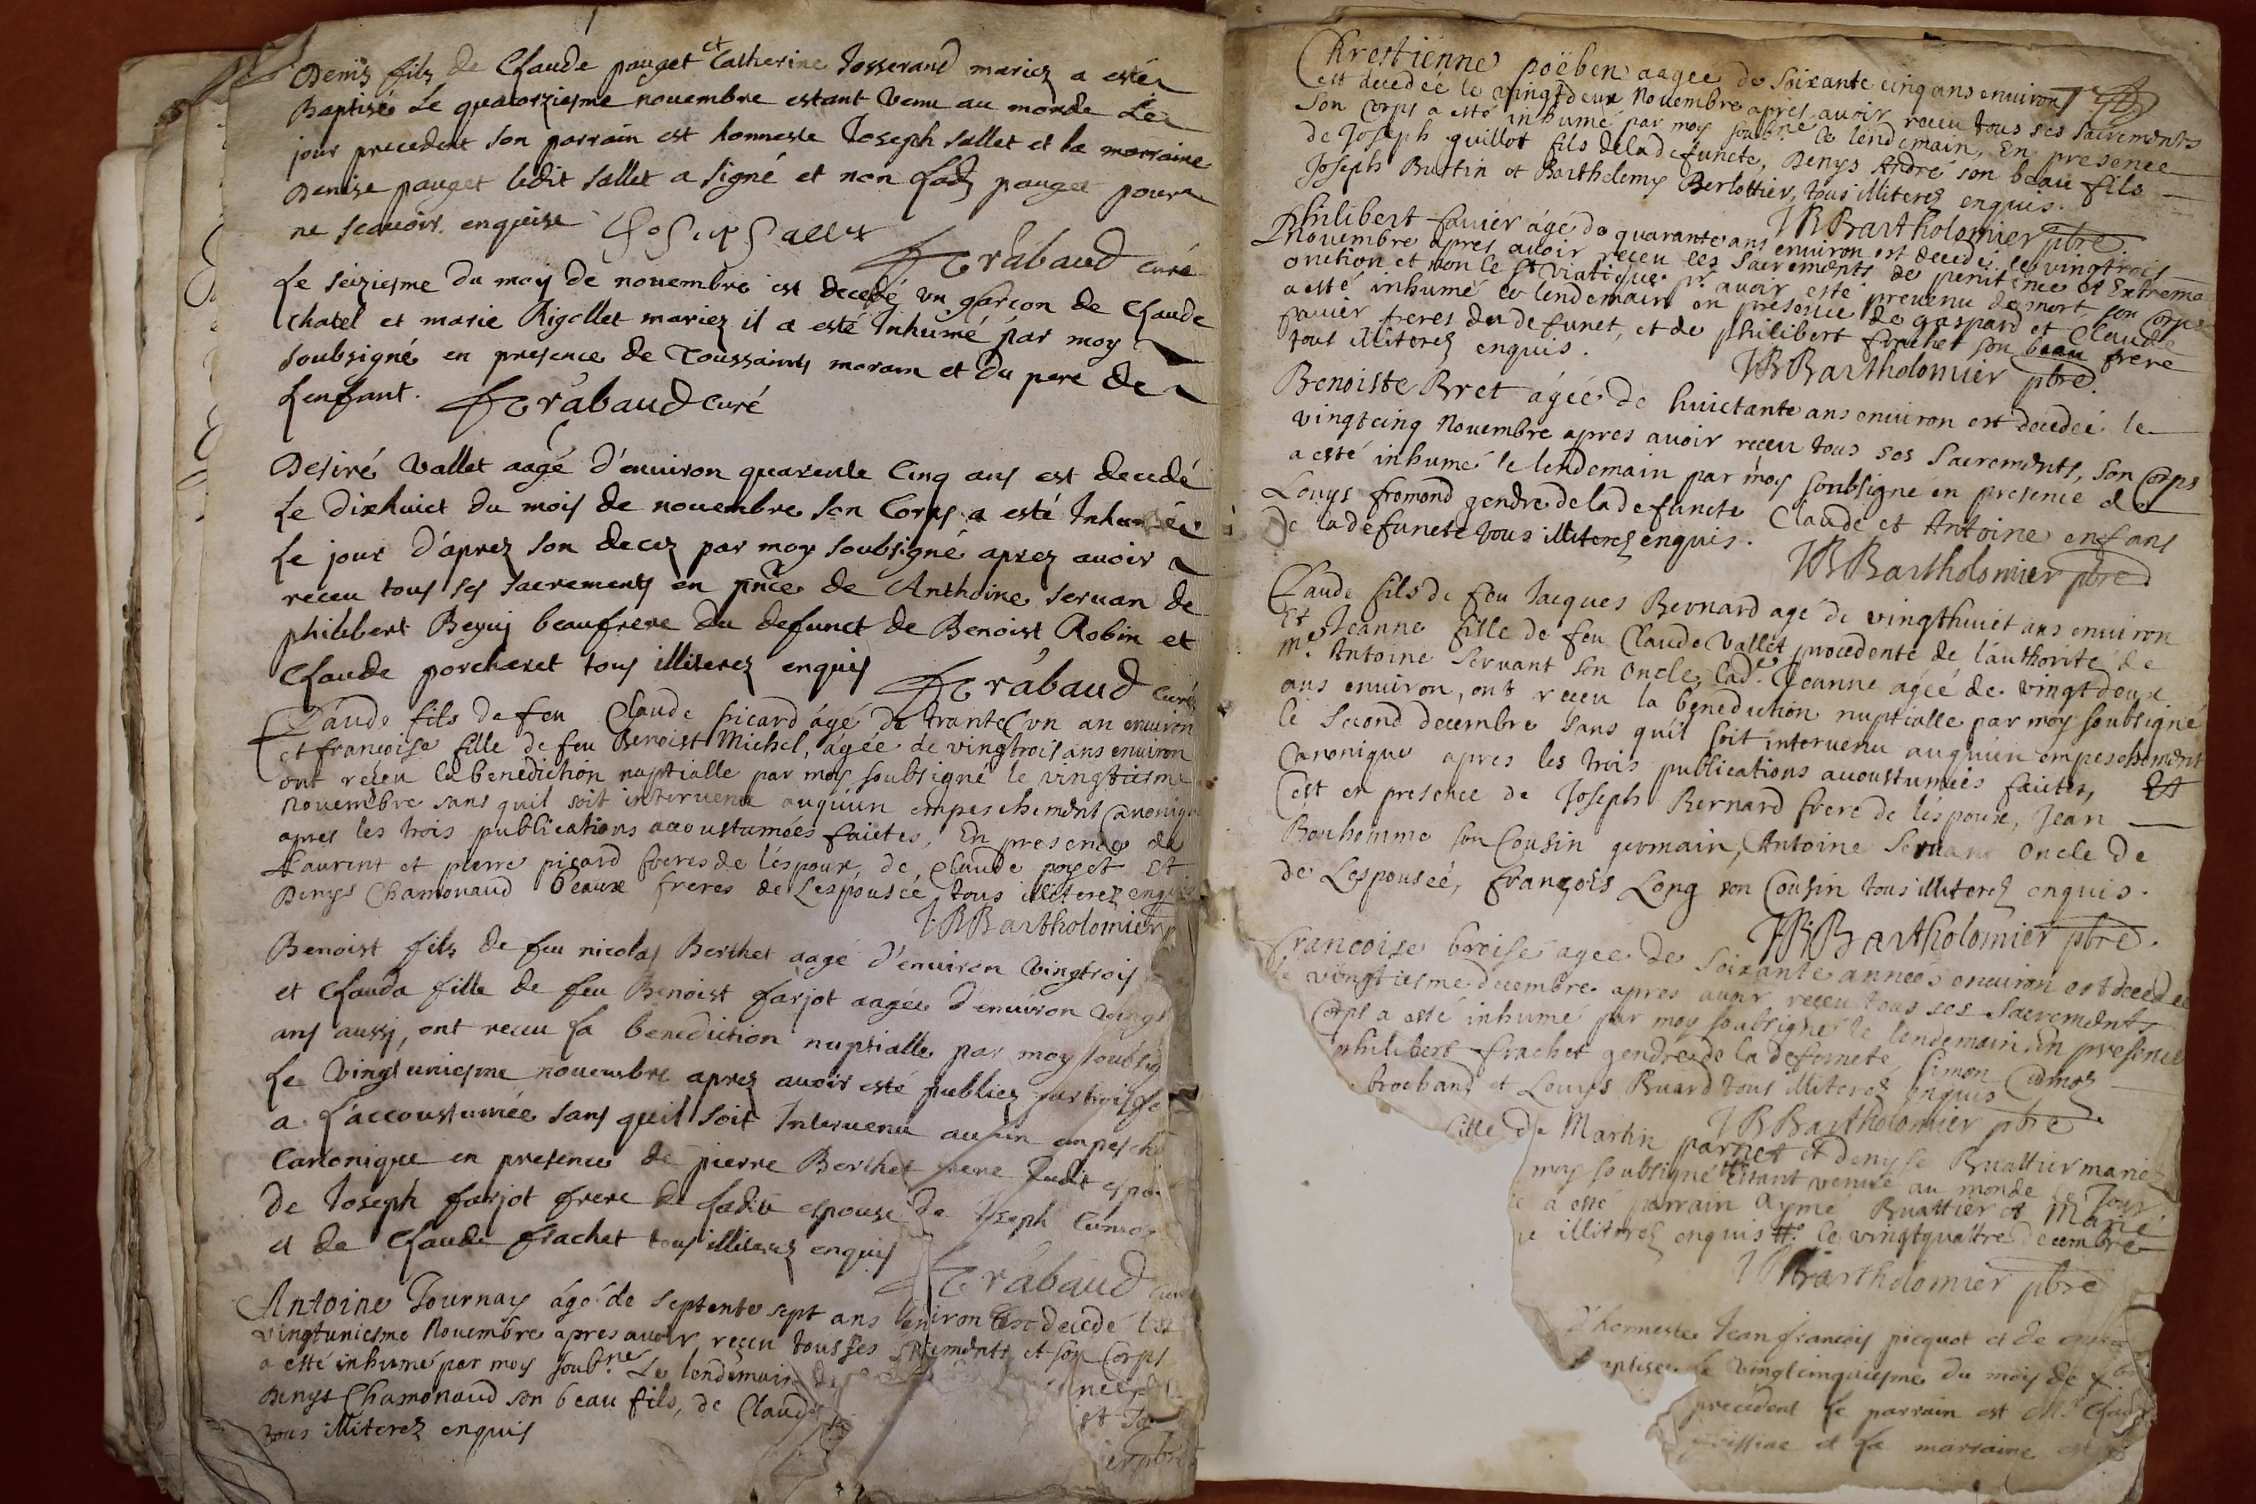 Denis fils de Claude pauget et Catherine Josserand mariez a esté
Baptisé Le quatorziesme nouembre estant Venu au monde Le
jour precedent son parrain est honneste Joseph sallet et la marraine
Denise pauget ledit sallet a signé et non lad pauget pour
ne scauoir enquise Joseph Sallet
Trabaud curé
Le seiziesme du moy de nouembre est decedé vn garçon de Claude
Chatel et marie Rigollet mariez il a esté Inhumé par moy
soubsigné en presence de Toussaint moram et du pere de
Lenfant. Trabaud curé
Desiré Vallet aagé d'enuiron quarente Cinq ans est decedé
Le dixhuict du mois de nouembre son Corps a esté Inhumé
Le jour d'aprez son decez par moy soubsigné aprez auoir
receu tous ses sacrements en pnce de Anthoine seruan de
philibert Beguy beaufrere du defunct de Benoist Robin et
Claude porcheret tous illiterez enquis Trabaud curé
Claude fils de feu Claude picard âgé de trante vn an enuiron
et françoise fille de feu Benoist Michel, âgée de vingtrois ans enuiron
ont reçeu la benediction nuptialle par moy soubsigné le vingtiesme
Nouembre sans quil soit interuenu auquun empeschement Canonique
apres les trois publications accoustumées faictes, En presence de
Laurent et pierre picard freres de l'éspoux, de Claude poyet Et
Denys Chamonaud beaux freres de Lespouséé tous illiterez enquis
JBBartholomier
Benoist fils de feu nicolas Berthet aagé d'enuiron Vingtrois
et Clauda fille de feu Benoist farjot aagée d'enuiron vingt
ans aussy, ont receu La benediction nuptialle par moy soubsig
Le Vingtuniesme nouembre aprez auoir esté publiez par trois fo
a L'accoustumée sans quil soit Interuenu aucun empesche
Canonique en presence de pierre Berthet frere dudit espou
de Joseph farjot frere de Ladite espouse de Joseph
et de Claude frachet tous illiterez enquis
Trabaud curé
Antoine Tournay âgé de septente sept ans enuiron Est decedé Le
vingtuniesme Nouembre apres auoir reçeu tous ses sacrements et son Corps
a esté inhumé par moy soubne Le lendemain
Denys Chamonaud son beau fils, de Claude
tous illiterez enquis
Chrestienne poëben aagee de soixante cinq ans enuiron
est decedéé le vingtdeux Nouembre apres auoir receu tous ses sacrements
Son Corps a esté inhumé par moy soubne le lendemain, En presence
de Joseph guillot fils delad defuncte, Denys André son beau fils
Joseph Burtin et Barthelemy Berlottier, tous illiterez enquis.
JBBartholomier pbre
Philibert fauier âgé de quarante ans enuiron est decedé le vingtrois
Nouembre apres auoir reçeu les sacrements de penitence et Extreme
onction et non le st Viatique pr auoir esté preuenu de mort son Corps
a esté inhumé le lendemain en presence de gaspard et Claude
fauier freres du defunct, et de philibert frachet son beau frere
tous illiterez enquis. JBBartholomier pbre
Benoiste Bret âgéé de huictante ans enuiron est decedéé le
vingtcinq Nouembre apres auoir receu tous ses sacrements, son Corps
a esté inhumé le lendemain par moy soubsigné en presence de
Louys fromond gendre de la defuncte Claude et Antoine enfans
de la defuncte tous illiterez enquis.
JBBartholomier pbre
Claude fils de feu Jacques Bernard agé de vingthuict ans enuiron
Et Jeanne fille de feu Claude Vallet procedente de l'authorité de
me Antoine Seruant son Oncle, Lade Jeanne âgéé de vingtdeux
ans enuiron, ont reçeu la benediction nuptialle par moy soubsigné
le second decembre sans qu'il soit interuenu auquun empeschement
Canonique apres les trois publications accoustumées faictes, Et
C'est en presence de Joseph Bernard frere de léspoux, Jean
Bonhomme son Cousin germain, Antoine Seruant Oncle de
de Lespouséé, françois Long son Cousin tous illiterez enquis.
JBBartholomier pbre.
francoise broise agée de soixante années enuiron est decedee
le vingtiesme decembre apres auoir receu tous ses sacrements
Corps a esté inhumé par moy soubsigné le lendemain en presence
philibert frachet gendre de la defuncte, Simon
brocband et Louys Buard tous illiterez enquis
JBBartholomier pbre
fille de Martin parret et denyse Buattier mariez
moy soubsigné Estant venue au monde le Jour
a esté parrain Aymé Buattier et Marie
illiterez enquis le vingtquattre decembre
JBBartholomier pbre
d'honneste Jean françois picquot et de
baptisee Le Vingtcinquiesme du mois de xbre
precedent Le parrain est Mr Claude
et La marraine est